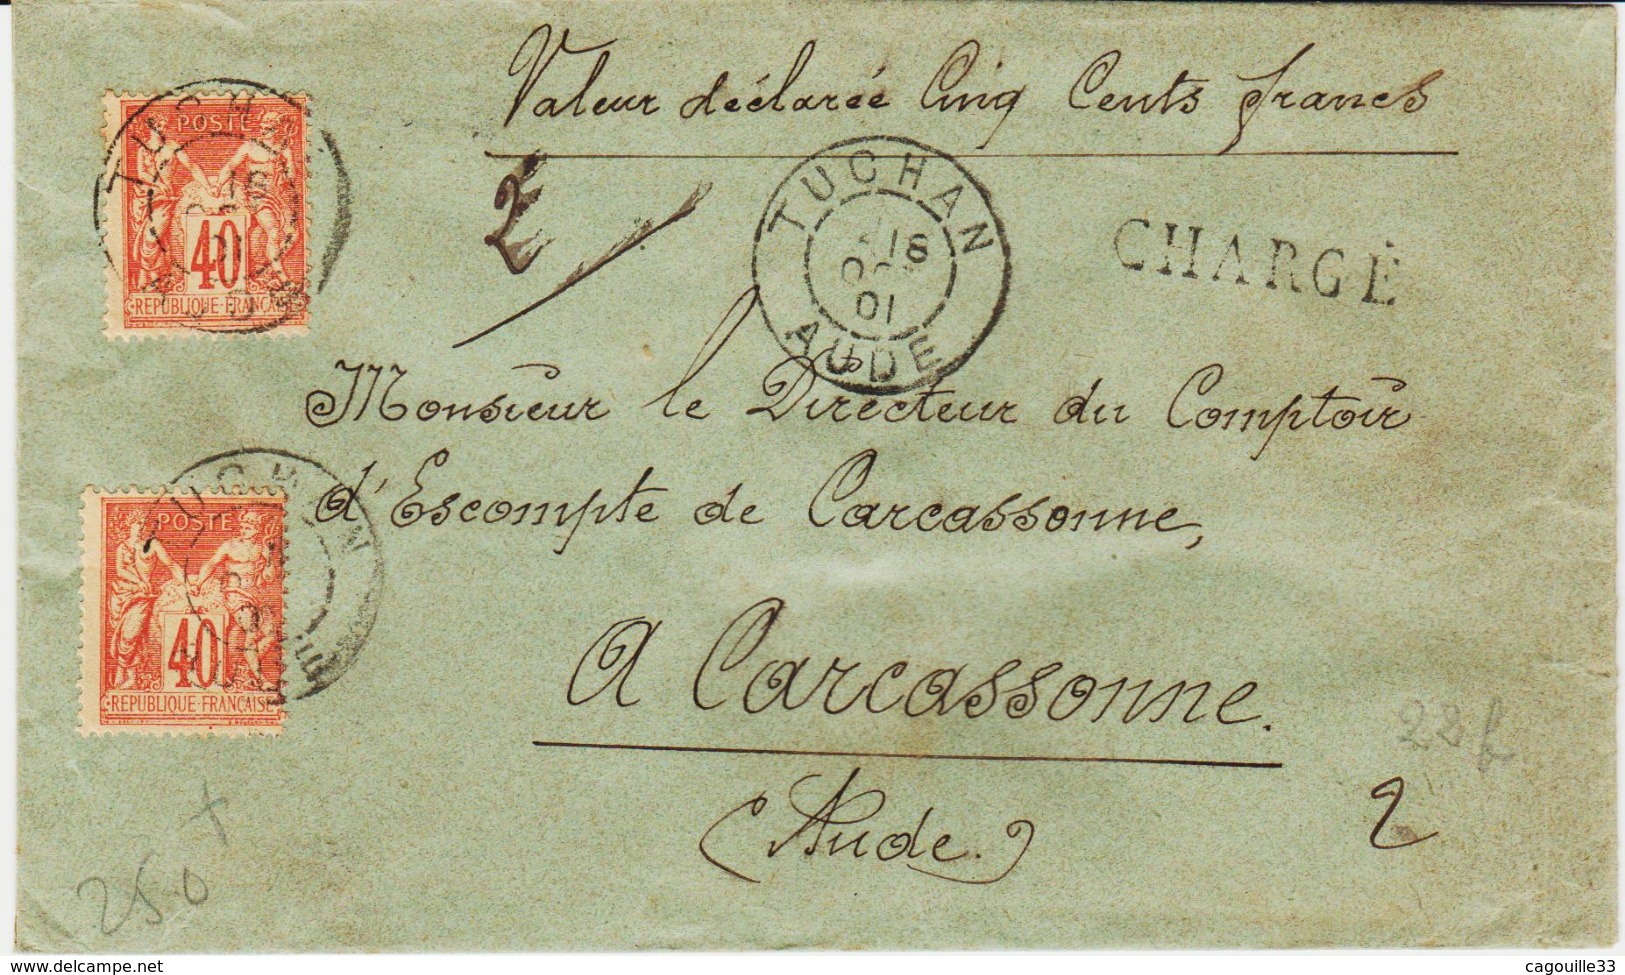 Valeur déclarée Cinq Cents francs
TUCHAN
POSTE
40
REPUBLIQUE FRANÇAISE
2
TUCHAN
18
OCT
01
AUDE
CHARGÉ
Monsieur le Directeur du Comptoir
d'Escompte de Carcassonne,
TUCHAN
POSTE
40
REPUBLIQUE FRANÇAISE
A Carcassonne.
(Aude.)
2
250
www.delcampe.net
cagouille33